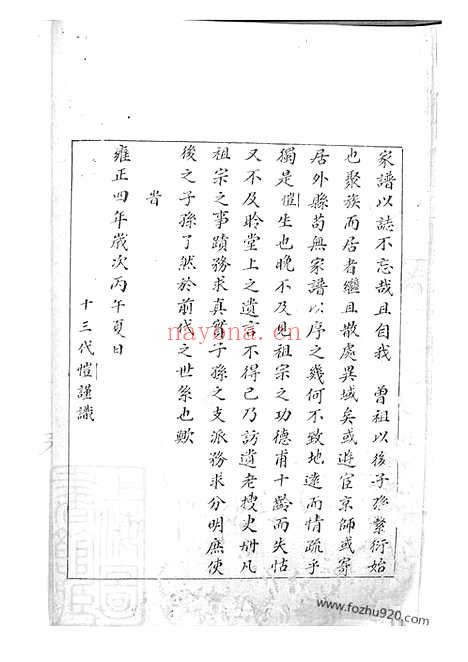 家譜以誌不忘哉且自我　曽祖以後子孫繁衍始
也聚族而居者繼且散處異域矣或遊宦京師或寄
居外縣苟無家譜以序之幾何不致地遠而情疏乎
獨是愷生也晚不及見祖宗之功德甫十齡而失怙
又不及聆堂上之遺言不得已乃訪遺老搜史册凡
祖宗之事蹟務求真實子孫之支派務求分明庶使
後之子孫了然於前代之世系也歟
旹
雍正四年歲次丙午夏日
十三代愷謹識
nayona.cn
www.fozhu920.com